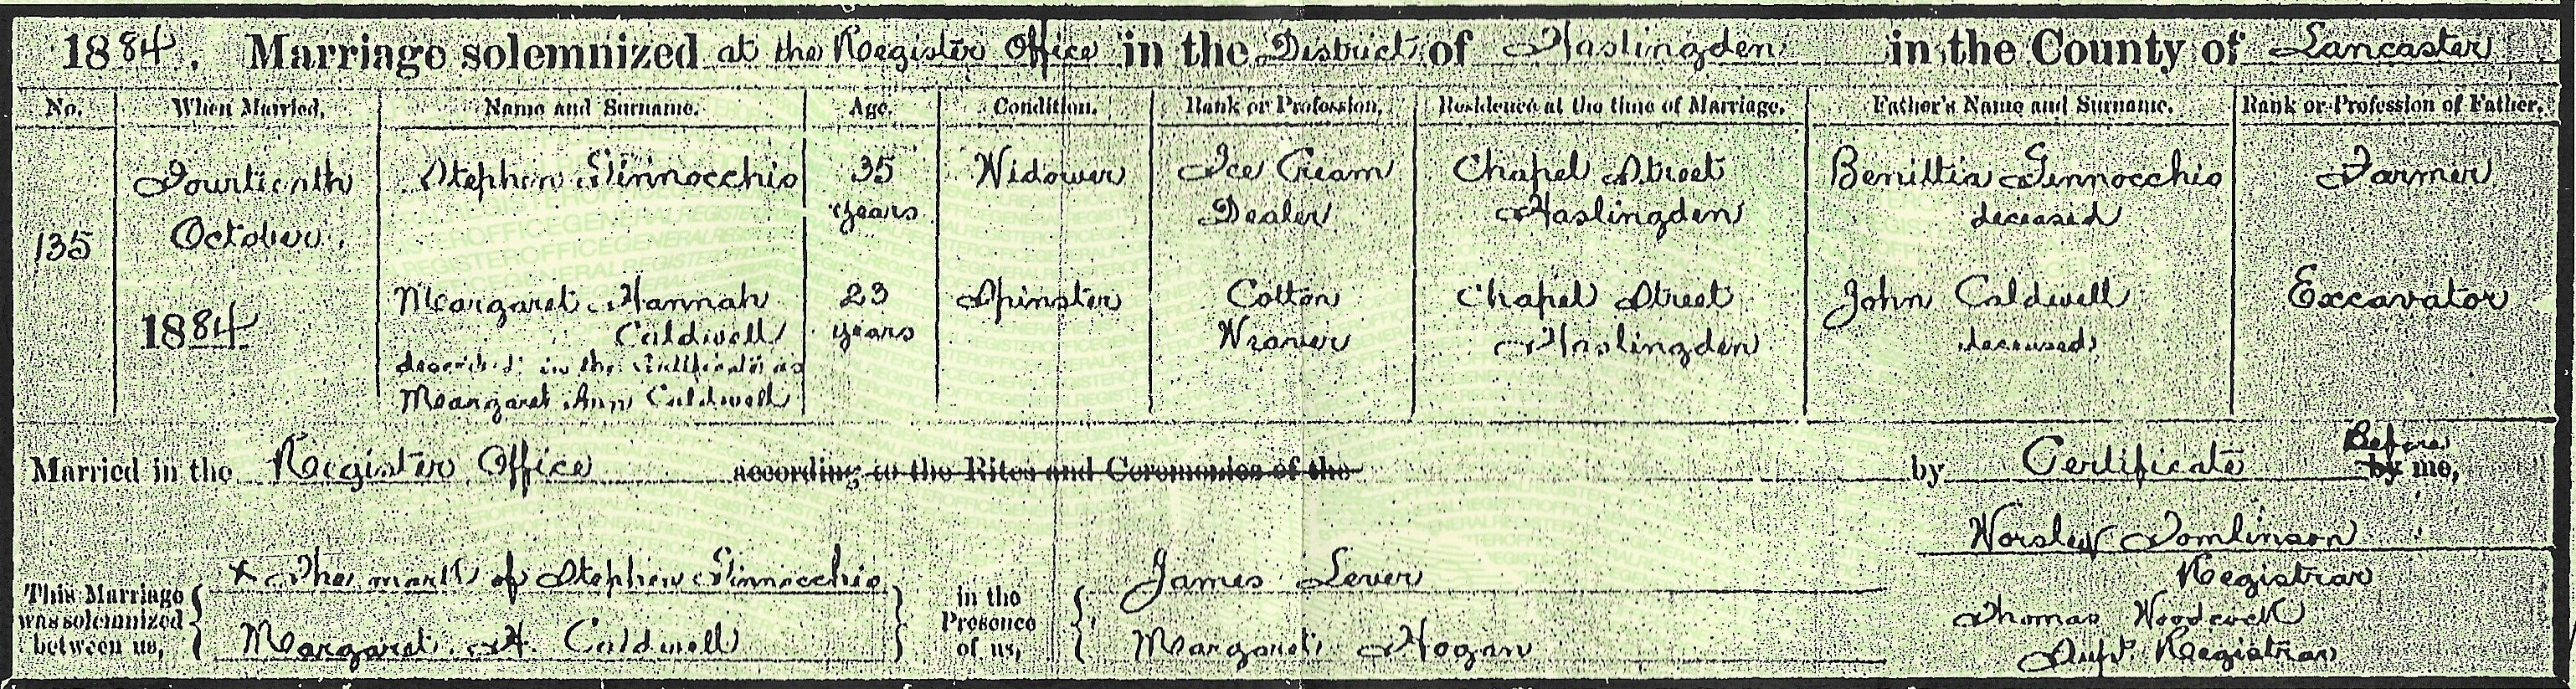 1884. Marriage solemnized at the Register Office in the District of Haslingden in the County of Lancaster
No. When Married. Name and Surname. Age. Condition. Rank or Profession. Residence at the time of Marriage. Father's Name and Surname. Rank or Profession of Father.
135
Fourteenth
October
1884
Stephen Ginnocchio
35
years
Widower
Ice Cream
Dealer
Chapel Street
Haslingden
Benittia Ginnocchio
deceased
Farmer
Margaret Hannah
Caldwell
described in the Certificate as
Margaret Ann Caldwell
23
years
Spinster
Cotton
Weaver
Chapel Street
Haslingden
John Caldwell
deceased
Excavator
Married in the Register Office according to the Rites and Ceremonies of the by Certificate Before by me,
Worsley Tomlinson
Registrar
Thomas Woodcock
Supt. Registrar
This Marriage
was solemnized
between us,
X The mark of Stephen Ginnocchio
Margaret H. Caldwell
in the
Presence
of us,
James Lever
Margaret Hogan